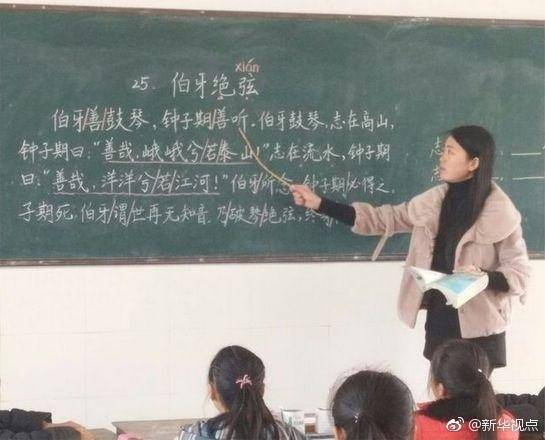 xián
25. 伯牙绝弦
伯牙/善/鼓琴，钟子期/善听。伯牙鼓琴，志在高山，
钟子期曰：“善哉，峨峨兮/若泰山！”志在流水，钟子期
曰：“善哉，洋洋兮/若/江河！”伯牙/所念，钟子期/必得之。
子期死，伯牙/谓/世再无知音，乃/破琴/绝弦，终
志
@新华视点